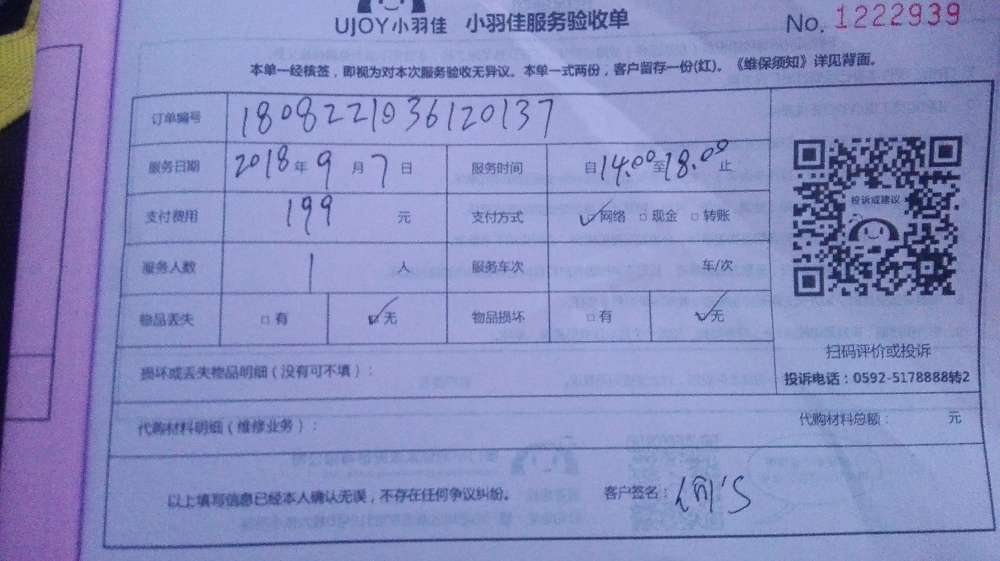 UJOY小羽佳 小羽佳服务验收单 No. 1222939
本单一经核签，即视为对本次服务验收无异议。本单一式两份，客户留存一份(红)。《维保须知》详见背面。
订单编号 1808221036120137
服务日期 2018年9月7日 服务时间 自14.00至18.00止
支付费用 199元 支付方式 ☑网络 □现金 □转账
投诉或建议
服务人数 1人 服务车次 车/次
物品丢失 □有 ☑无 物品损坏 □有 ☑无
扫码评价或投诉
损坏或丢失物品明细（没有可不填）：
投诉电话：0592-5178888转2
代购材料明细（维修业务）： 代购材料总额： 元
以上填写信息已经本人确认无误，不存在任何争议纠纷。 客户签名：